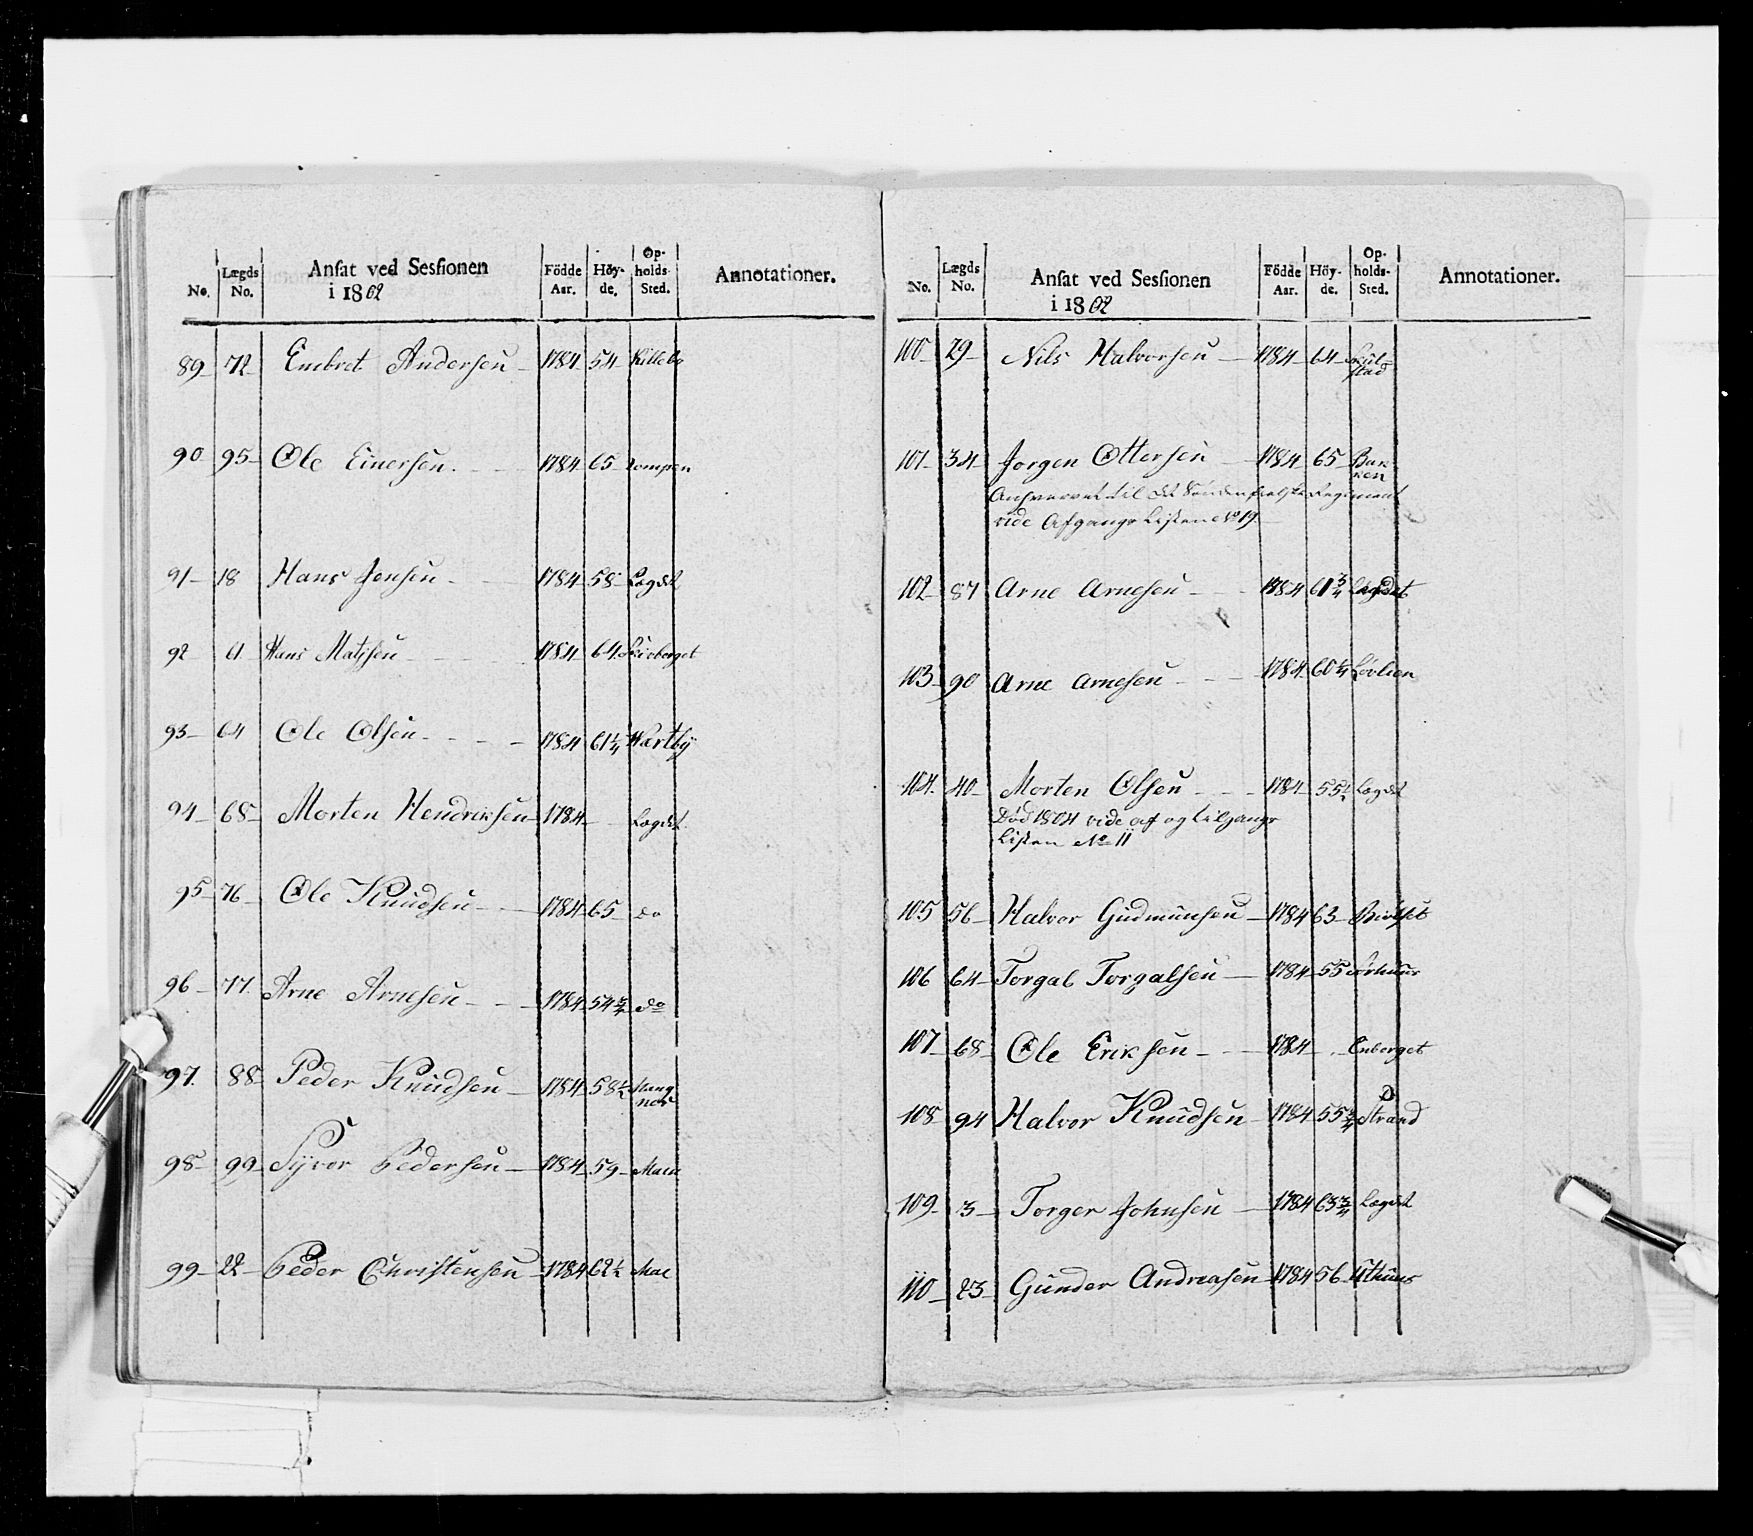 No. Lægds No. Ansat ved Sessionen i 1802 Födde Aar. Höy-de. Op-holds-Sted. Annotationer.
89 72 Embret Andersen 1784 54 Killebo
90 95 Ole Einersen 1784 65 Rompen
91 18 Hans Jensen 1784 58 Lægdet
92 Hans Matsen 1784 64
93 64 Ole Olsen 1784 61¼ Wærtby
94 68 Morten Hendriksen 1784 Lægdet
95 76 Ole Knudsen 1784 65 do
96 77 Arne Arnesen 1784 54¾ do
97 88 Peder Knudsen 1784 58½ Mangnor
98 99 Syver Pedersen 1784 59 Moen
99 22 Peder Christensen 1784 62½ Moe
No. Lægds No. Ansat ved Sessionen i 1802 Födde Aar. Höy-de. Op-holds-Sted. Annotationer.
100 29 Nils Halvorsen 1784 64
101 34 Jorgen Ottersen 1784 65 Bakken
Anhvervet til det Søndenfielske Regiment
vide Afgangs Listen No 19
102 87 Arne Arnesen 1784 61¾ Lægdet
103 90 Arne Arnesen 1784 60¼ Lövlien
104 40 Morten Olsen 1784 55½ Lægdet
Död 1804 vide af og tilgangs
Listen No 11
105 56 Halvor Gudmunsen 1784 63
106 64 Torgal Torgalsen 1784 55 Aarhuus
107 68 Ole Eriksen 1784 Enberget
108 94 Halvor Knudsen 1784 55¾ Strand
109 3 Torger Johnsen 1784 63¾ Lægdet
110 23 Gunder Andreasen 1784 56 Uthuus